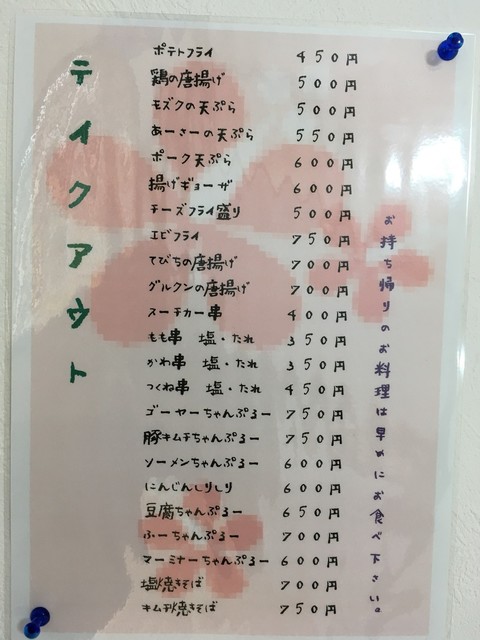 テイクアウト
ポテトフライ 450円
鶏の唐揚げ 500円
モズクの天ぷら 500円
あーさーの天ぷら 550円
ポーク天ぷら 600円
揚げギョーザ 600円
チーズフライ盛り 500円
エビフライ 750円
てびちの唐揚げ 700円
グルクンの唐揚げ 700円
スーチカー串 400円
もも串 塩・たれ 350円
かわ串 塩・たれ 350円
つくね串 塩・たれ 450円
ゴーヤーちゃんぷるー 750円
豚キムチちゃんぷるー 750円
ソーメンちゃんぷるー 600円
にんじんしりしり 600円
豆腐ちゃんぷるー 650円
ふーちゃんぷるー 700円
マーミナーちゃんぷるー 600円
塩焼きそば 700円
キムチ焼きそば 750円
お持ち帰りのお料理は早めにお食べ下さい。